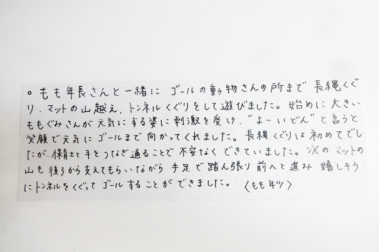 ○ もも年長さんと一緒に ゴールの動物さんの所まで 長縄くぐ
り、マットの山越え、トンネルくぐりをして遊びました。始めに 大きい
ももぐみさんが 元気にする姿に刺激を受け、"よーいどん"と言うと
笑顔で元気に ゴールまで 向かってくれました。長縄くぐりは 初めてでし
たが、保育士と手をつなぎ通ることで 不安なく できていました。次の マットの
山も 後ろから支えてもらいながら 手足で踏ん張り 前へと進み 嬉しそう
にトンネルをくぐって ゴールすることが できました。 〈もも年少〉